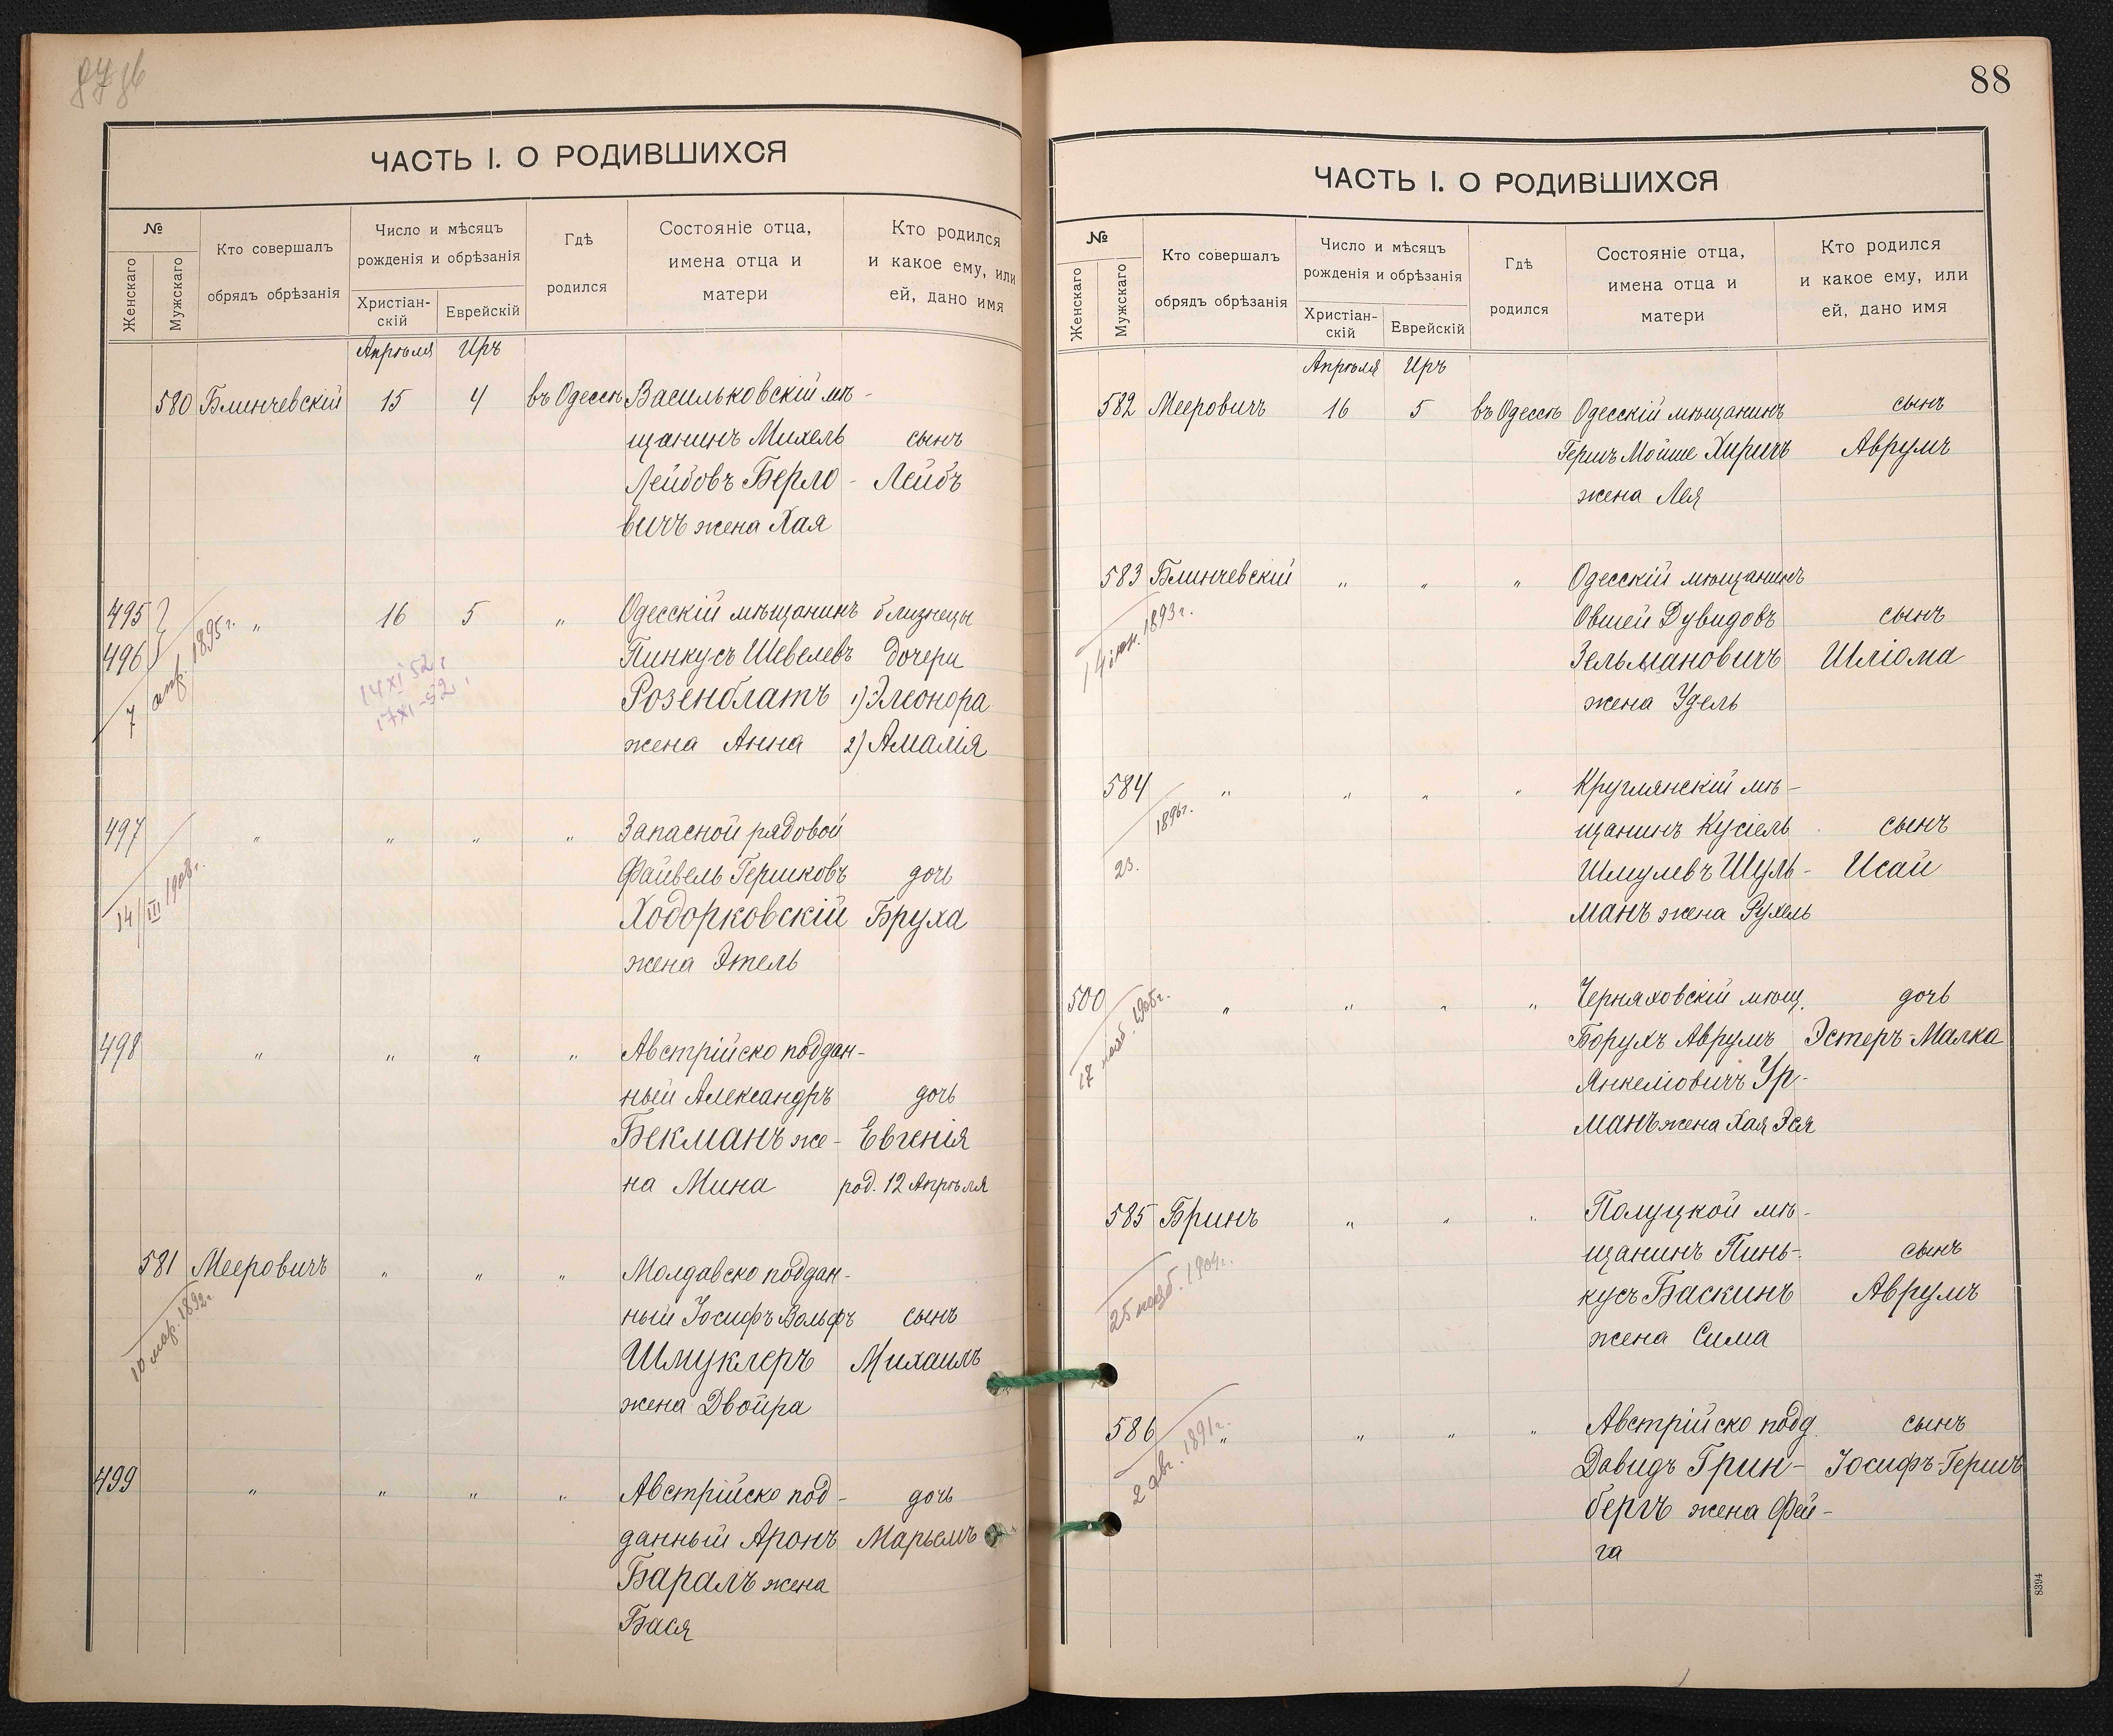 ЧАСТЬ I. О РОДИВШИХСЯ
№
Женскаго
Мужскаго
Кто совершалъ
обрядъ обрѣзанія
Число и мѣсяцъ
рожденія и обрѣзанія
Христіан-
скій
Еврейскій
Гдѣ
родился
Состояніе отца,
имена отца и
матери
Кто родился
и какое ему, или
ей, дано имя
Апрѣля Иръ
580 Блинчевскій 15 4 въ Одессѣ Васильковскій мѣ-
щанинъ Михель сынъ
Лейбовъ Берло- Лейбъ
вичъ жена Хая
495 " 16 5 " Одесскій мѣщанинъ близнецы
496 Пинкусъ Шевелевъ дочери
7 апр. 1895г.
14 XI 52
17 XI-52
Розенблатъ 1) Элеонора
жена Анна 2) Амалія
497 " " " " Запасной рядовой
14/III 1908г.
Файвель Гершковъ дочь
Ходорковскій Бруха
жена Этель
498 " " " " Австрійско поддан-
ный Александръ дочь
Бекманъ же- Евгенія
на Мина род. 12 Апрѣля
581 Мееровичъ " " " Молдавско поддан-
10 мар. 1892г.
ный Іосифъ Вольфъ сынъ
Шмуклеръ Михаилъ
жена Двойра
499 " " " " Австрійско под- дочь
данный Аронъ Марьемъ
Баралъ жена
Бася
88
ЧАСТЬ I. О РОДИВШИХСЯ
№
Женскаго
Мужскаго
Кто совершалъ
обрядъ обрѣзанія
Число и мѣсяцъ
рожденія и обрѣзанія
Христіан-
скій
Еврейскій
Гдѣ
родился
Состояніе отца,
имена отца и
матери
Кто родился
и какое ему, или
ей, дано имя
Апрѣля Иръ
582 Мееровичъ 16 5 въ Одессѣ Одесскій мѣщанинъ сынъ
Гершъ Мойше Хиричъ Аврумъ
жена Лея
583 Блинчевскій " " " Одесскій мѣщанинъ
1893г.
Овшей Дувидовъ сынъ
Зельмановичъ Шліома
жена Удель
584 " " " " Круглянскій мѣ-
23. 1896г.
щанинъ Кусіель сынъ
Шмулевъ Шуль- Исай
манъ жена Рухель
500 " " " " Черняховскій мѣщ. дочь
17 1905г.
Борухъ Аврумъ Эстеръ-Малка
Янкеліовичъ Ур-
манъ жена Хая Эся
585 Бринъ " " " Полуцкой мѣ-
25 нояб. 1904г.
щанинъ Пинь- сынъ
кусъ Баскинъ Аврумъ
жена Сима
586 " " " " Австрійско подд. сынъ
2 авг. 1891г.
Давидъ Грин- Іосифъ-Гершъ
бергъ жена Фей-
га
8394